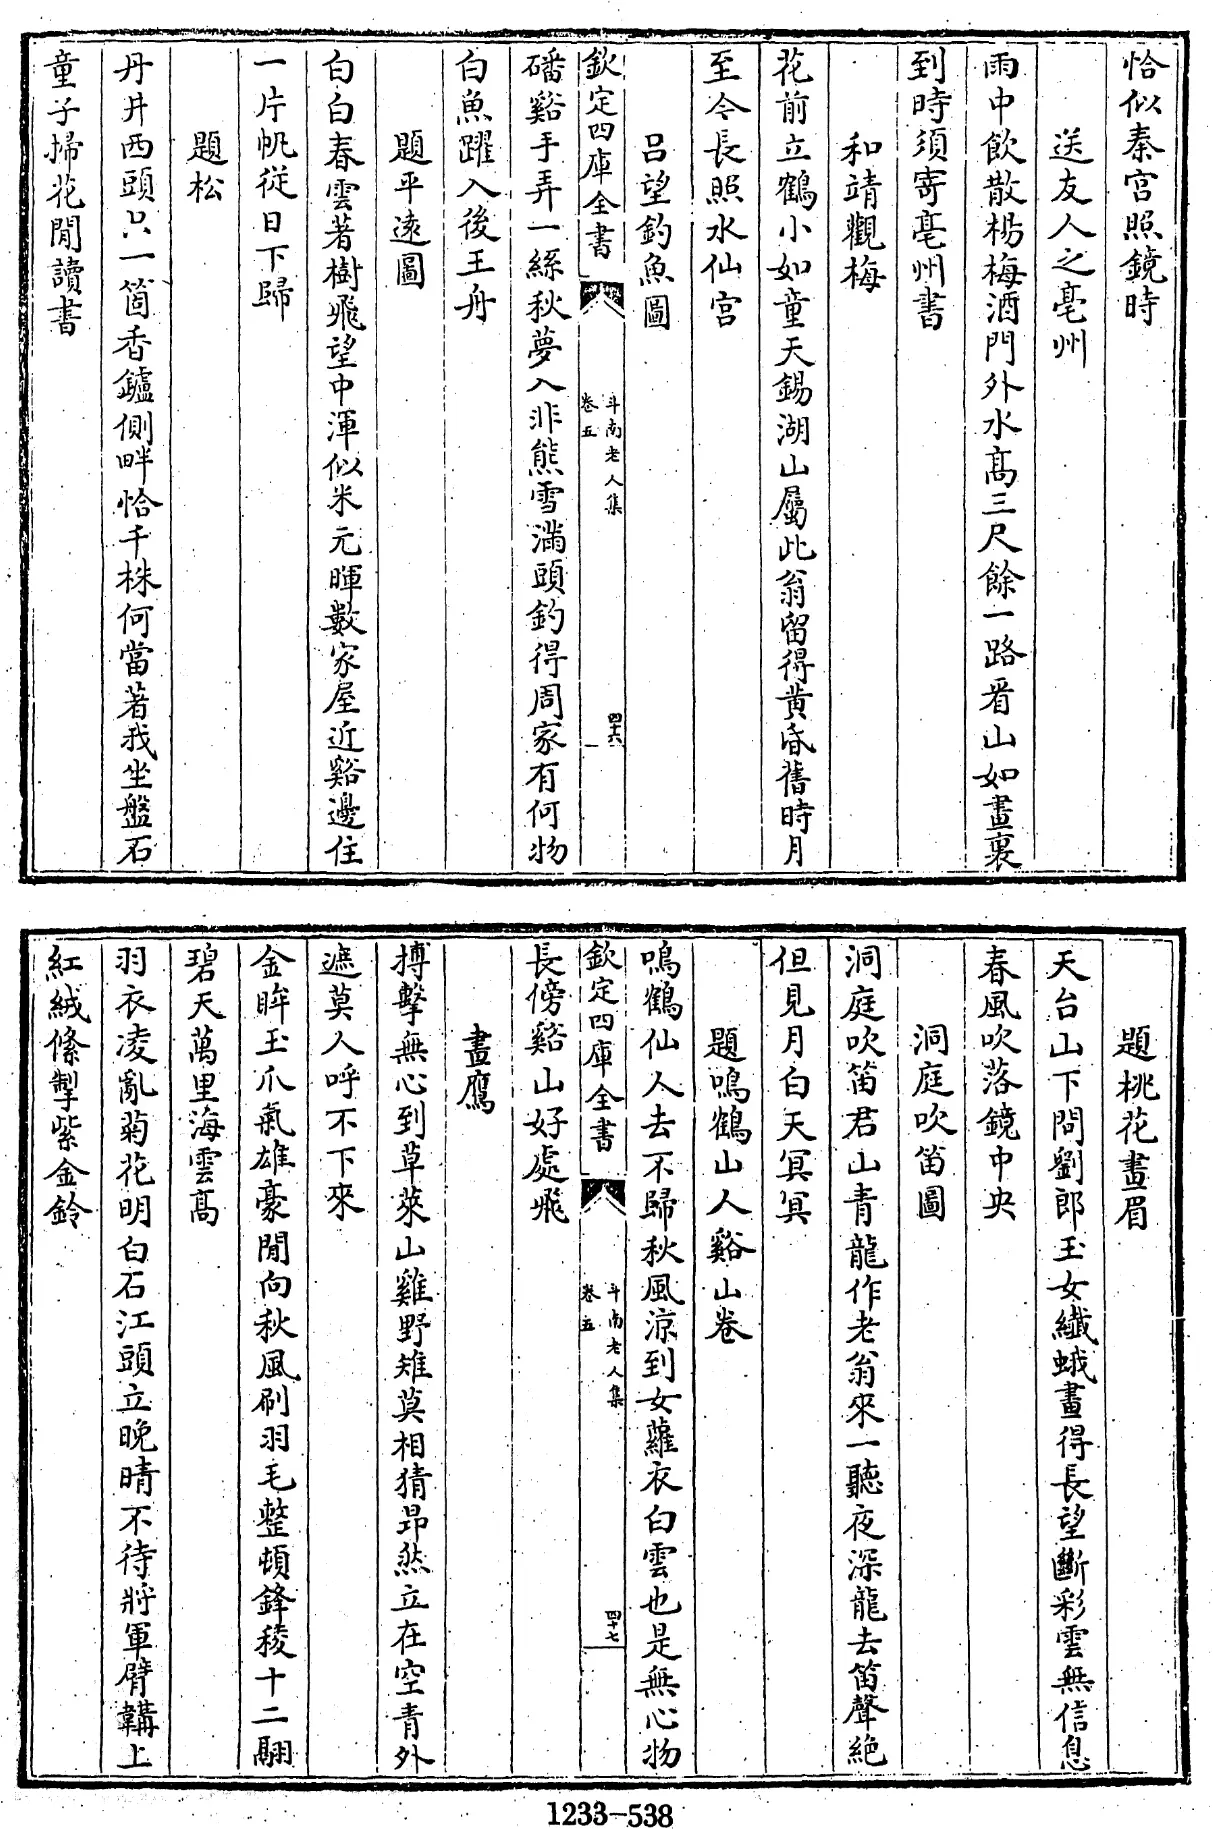 恰似秦宮照鏡時
送友人之亳州
雨中飲散楊梅酒門外水髙三尺餘一路看山如畫裏
到時須寄亳州書
和靖觀梅
花前立鶴小如童天錫湖山屬此翁留得黄昏舊時月
至今長照水仙宫
吕望釣魚圖
欽定四庫全書
斗南老人集
卷五
四十六
磻谿手弄一絲秋夢入非熊雪滿頭釣得周家有何物
白魚躍入後王舟
題平逺圖
白白春雲著樹飛望中渾似米元暉數家屋近谿邊住
一片帆從日下歸
題松
丹井西頭只一箇香鑪側畔恰千株何當著我坐盤石
童子掃花閒讀書
題桃花畫眉
天台山下問劉郎玉女纎蛾畫得長望斷彩雲無信息
春風吹落鏡中央
洞庭吹笛圖
洞庭吹笛君山青龍作老翁來一聽夜深龍去笛聲絶
但見月白天冥冥
題鳴鶴山人谿山卷
鳴鶴仙人去不歸秋風凉到女蘿衣白雲也是無心物
欽定四庫全書
斗南老人集
卷五
四十七
長傍谿山好處飛
畫鷹
搏擊無心到草萊山雞野雉莫相猜昂然立在空青外
遮莫人呼不下來
金眸玉爪氣雄豪閒向秋風刷羽毛整頓鋒稜十二翮
碧天萬里海雲髙
羽衣凌亂菊花明白石江頭立晚晴不待將軍臂韝上
紅絨絛掣紫金鈴
1233-538